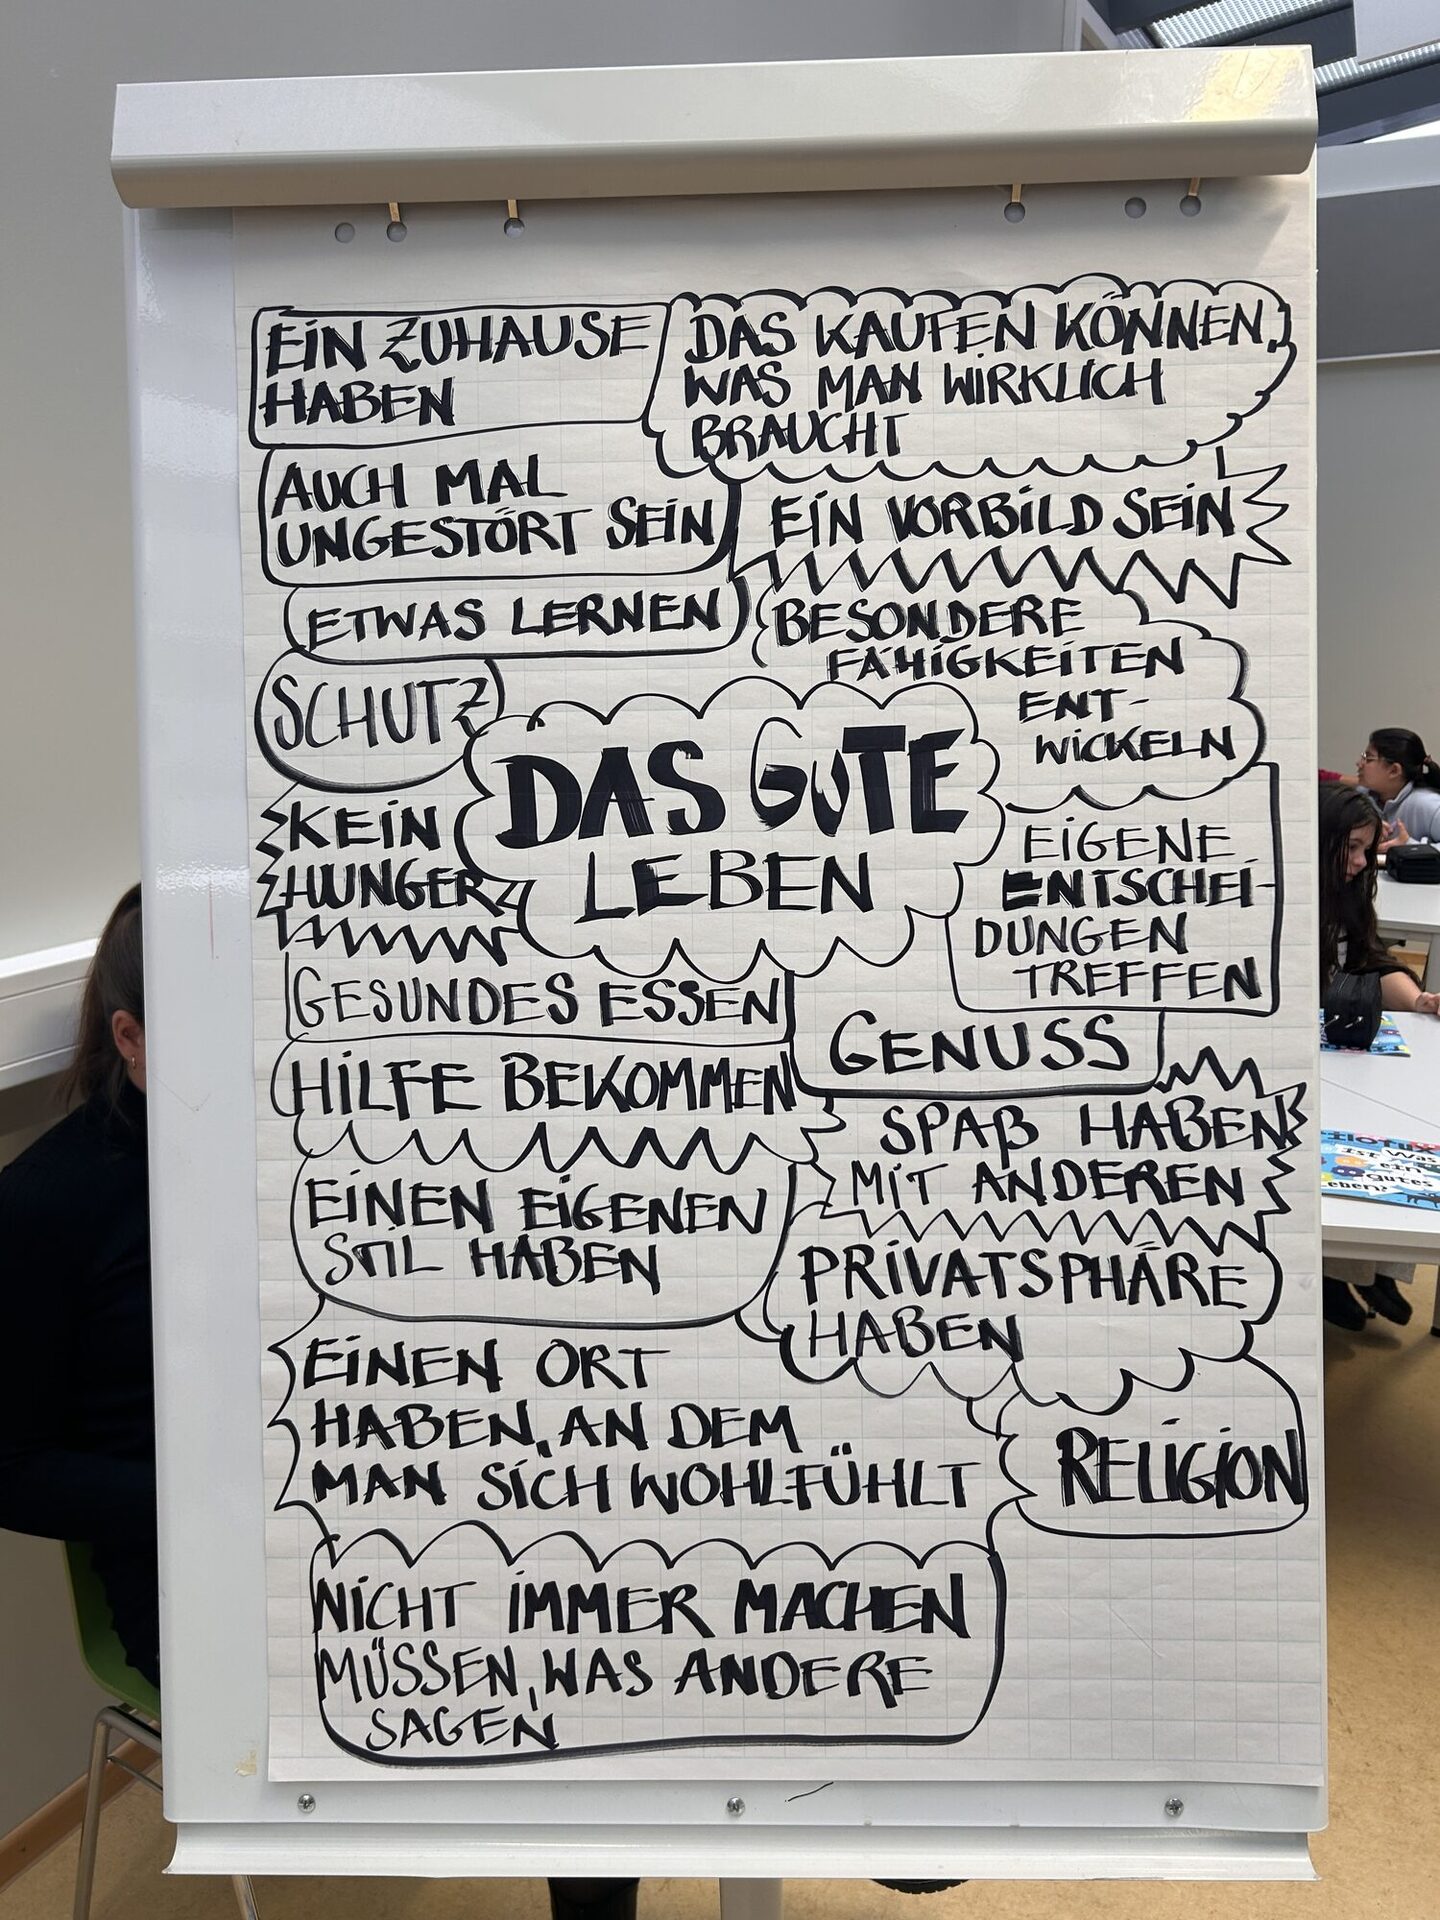 EIN ZUHAUSE
HABEN
DAS KAUFEN KÖNNEN,
WAS MAN WIRKLICH
BRAUCHT
AUCH MAL
UNGESTÖRT SEIN
EIN VORBILD SEIN
ETWAS LERNEN
BESONDERE
FÄHIGKEITEN
ENT-
WICKELN
SCHUTZ
DAS GUTE
LEBEN
KEIN
HUNGER
EIGENE
ENTSCHEI-
DUNGEN
TREFFEN
GESUNDES ESSEN
GENUSS
HILFE BEKOMMEN
SPAß HABEN
MIT ANDEREN
EINEN EIGENEN
STIL HABEN
PRIVATSPHÄRE
HABEN
EINEN ORT
HABEN, AN DEM
MAN SICH WOHLFÜHLT
RELIGION
NICHT IMMER MACHEN
MÜSSEN, WAS ANDERE
SAGEN
Ist Was
ein
gutes